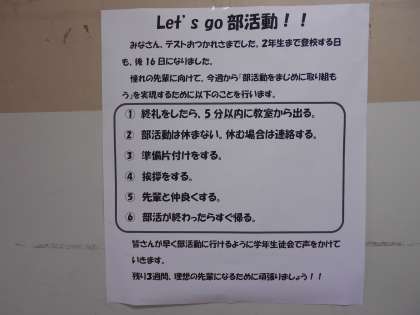 Let's go 部活動！！
みなさん、テストおつかれさまでした。2年生まで登校する日
も、後16日になりました。
憧れの先輩に向けて、今週から「部活動をまじめに取り組も
う」を実現するために以下のことを行います。
① 終礼をしたら、5分以内に教室から出る。
② 部活動は休まない。休む場合は連絡する。
③ 準備片付けをする。
④ 挨拶をする。
⑤ 先輩と仲良くする。
⑥ 部活が終わったらすぐ帰る。
皆さんが早く部活動に行けるように学年生徒会で声をかけて
いきます。
残り3週間、理想の先輩になるために頑張りましょう！！